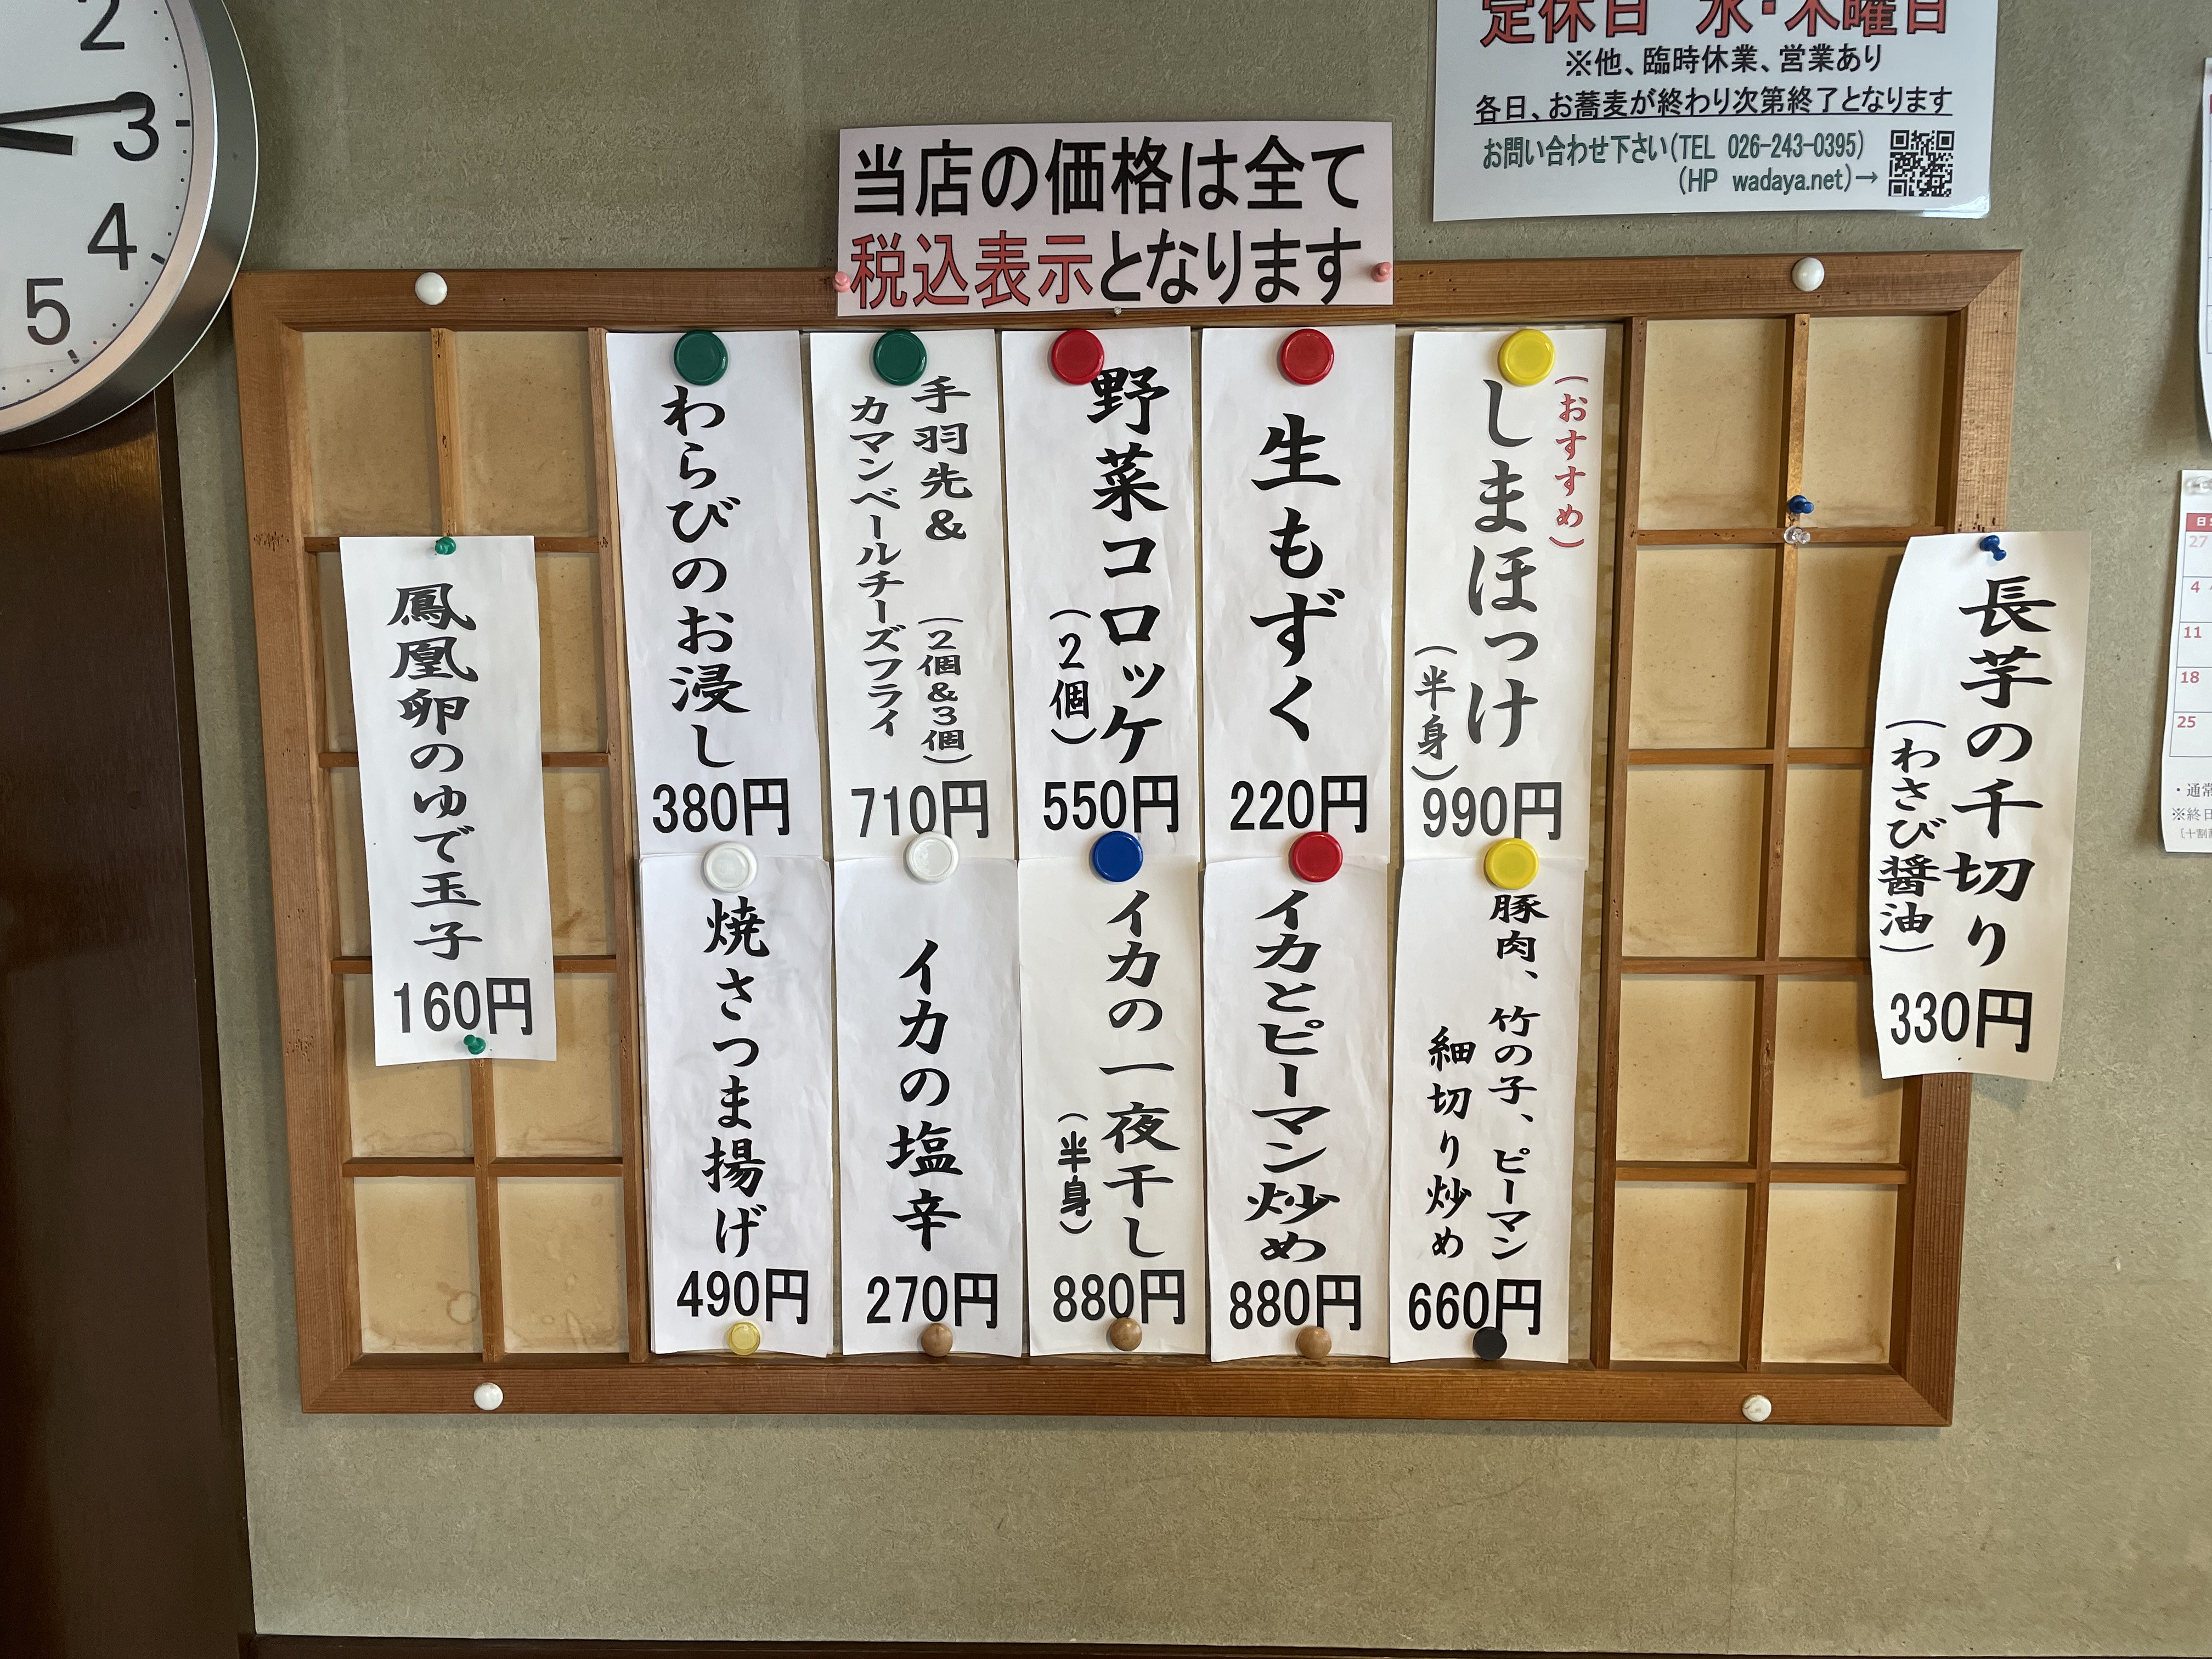 2
3
4
5
定休日 水・木曜日
※他、臨時休業、営業あり
各日、お蕎麦が終わり次第終了となります
お問い合わせ下さい(TEL 026-243-0395)
(HP wadaya.net)→
当店の価格は全て
税込表示となります
長芋の千切り
(わさび醤油)
330円
(おすすめ)
しまほっけ
(半身)
990円
生もずく
220円
野菜コロッケ
(2個)
550円
手羽先&
(2個&3個)
カマンベールチーズフライ
710円
わらびのお浸し
380円
豚肉、竹の子、ピーマン
細切り炒め
660円
イカとピーマン炒め
880円
イカの一夜干し
(半身)
880円
イカの塩辛
270円
焼さつま揚げ
490円
鳳凰卵のゆで玉子
160円
日
27
4
11
18
25
・通常
※終日